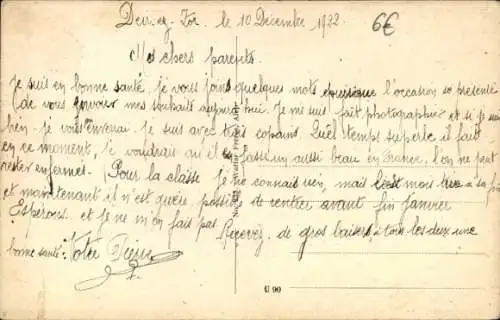 Deir-ez-Zor. le 10 Décembre 1922
6€
Mes chers parents.
Je suis en bonne santé, je vous joins quelques mots puisque l'occasion se présente
de vous envoyer mes souhaits aujourd'hui. Je me suis fait photographier et si je suis
bien je vous enverrai. Je suis avec très copains. Quel temps superbe il fait
en ce moment, je voudrais qu'il fasse un aussi beau en France, l'on ne peut
rester enfermés. Pour la classe je ne connais rien, mais mois
et maintenant il n'est guère possible de rentrer avant fin Janvier
Espérons. et je ne m'en fais pas. Recevez de gros baisers à tous les deux une
bonne santé. Votre
U 90